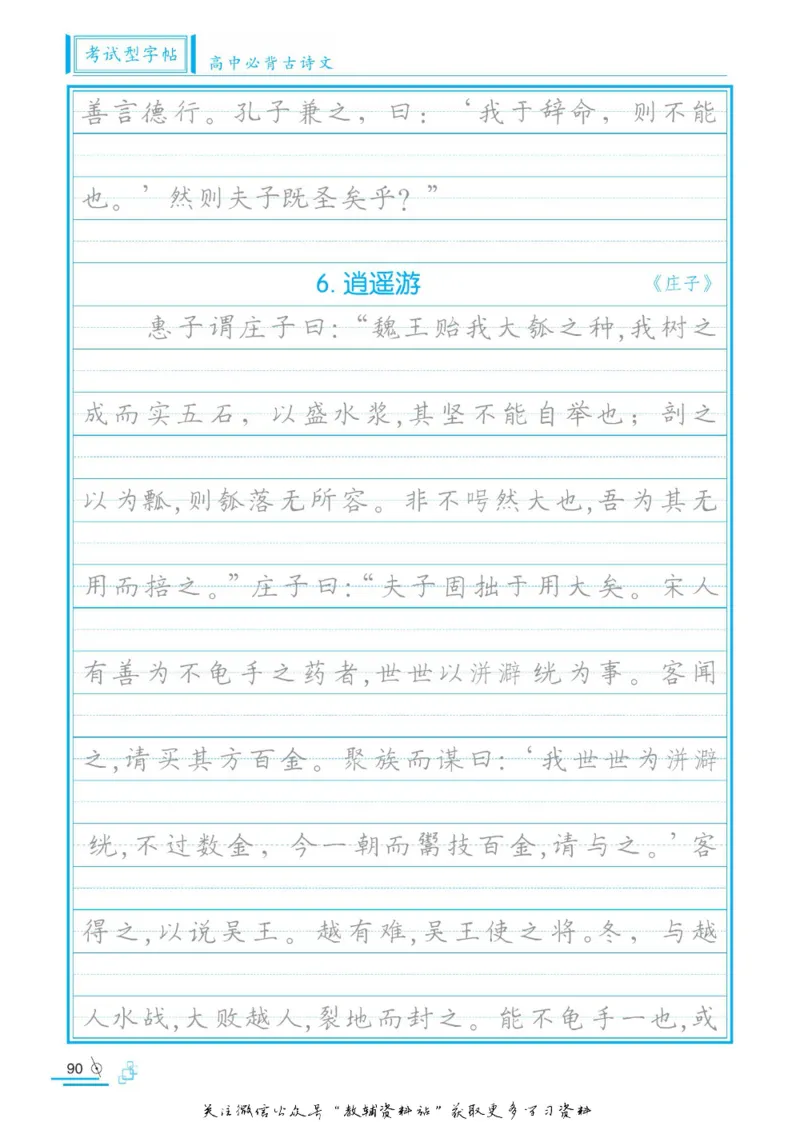 考试型字帖
高中必背古诗文
善言德行。孔子兼之，曰：‘我于辞命，则不能
也。’然则夫子既圣矣乎？”
6. 逍遥游
《庄子》
惠子谓庄子曰：“魏王贻我大瓠之种，我树之
成而实五石，以盛水浆，其坚不能自举也；剖之
以为瓢，则瓠落无所容。非不呺然大也，吾为其无
用而掊之。”庄子曰：“夫子固拙于用大矣。宋人
有善为不龟手之药者，世世以洴澼絖为事。客闻
之，请买其方百金。聚族而谋曰：‘我世世为洴澼
絖，不过数金，今一朝而鬻技百金，请与之。’客
得之，以说吴王。越有难，吴王使之将。冬，与越
人水战，大败越人，裂地而封之。能不龟手一也，或
90
关注微信公众号“教辅资料站”获取更多学习资料